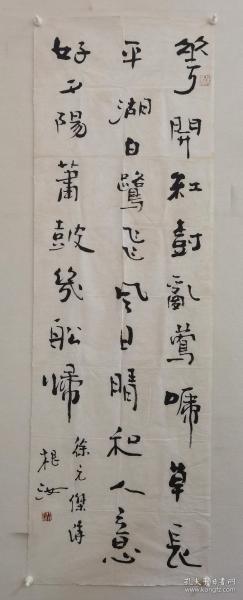 花開紅樹亂鶯啼草長
平湖白鷺飛風日晴和人意
好夕陽蕭鼓幾船歸
徐元傑詩
根汝
孔夫子旧书网